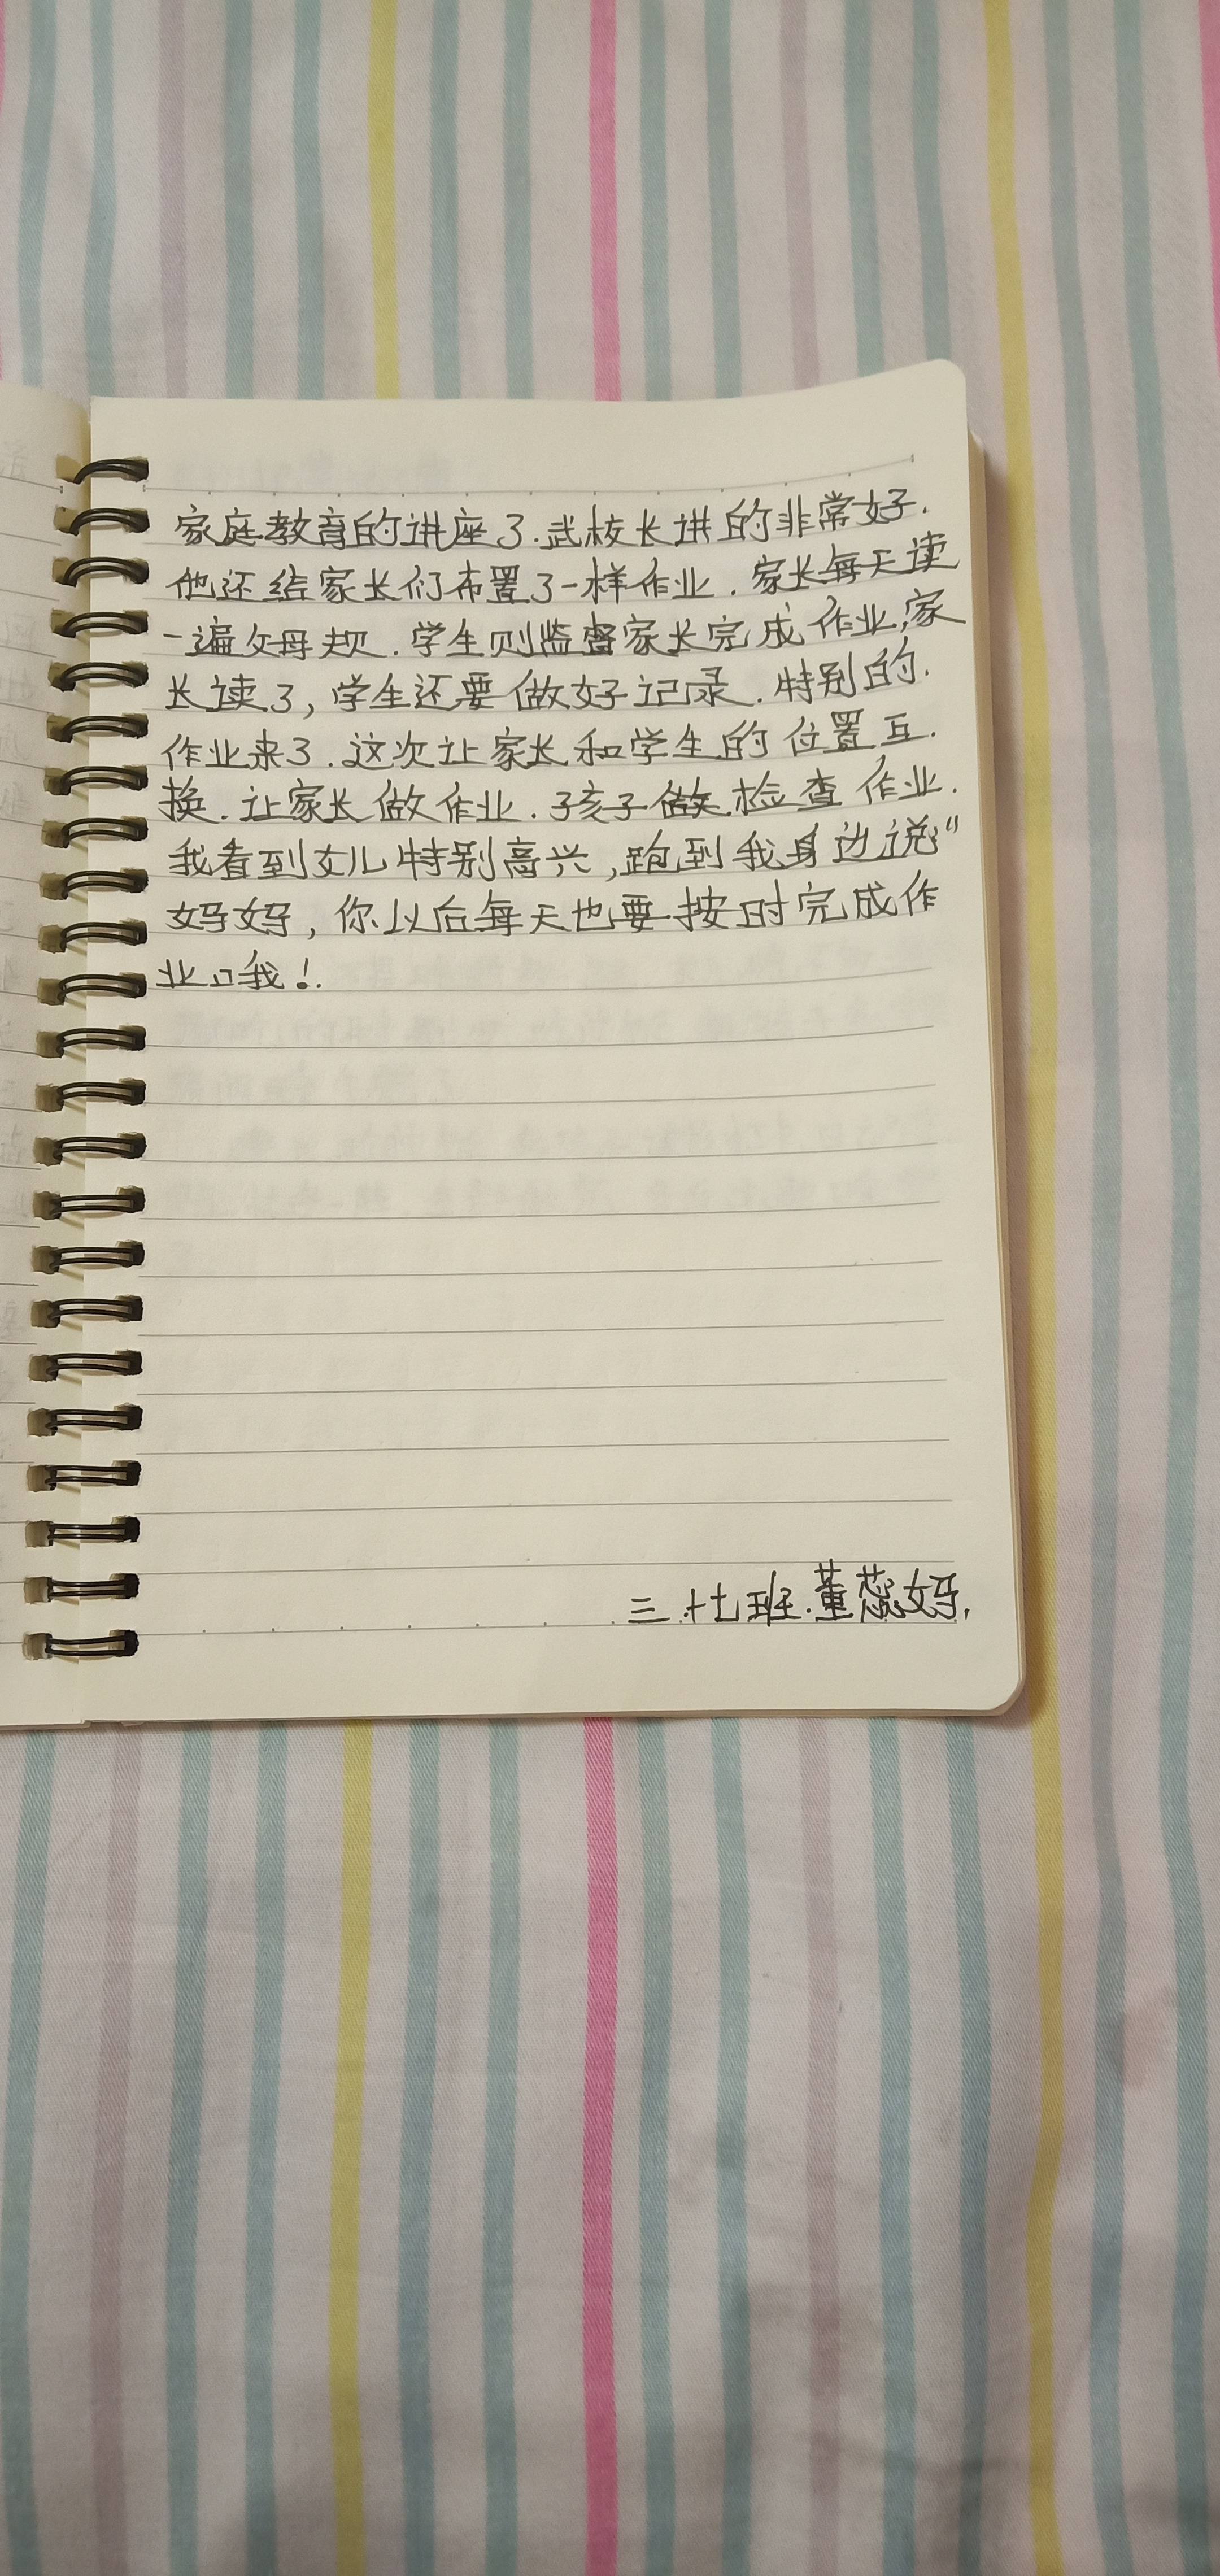 家庭教育的讲座了.武校长讲的非常好.
他还给家长们布置了一样作业.家长每天读
一遍父母规.学生则监督家长完成作业,家
长读了,学生还要做好记录.特别的.
作业来了.这次让家长和学生的位置互.
换.让家长做作业.孩子做检查作业.
我看到女儿特别高兴,跑到我身边说"
妈妈,你以后每天也要按时完成作
业口我!.
三.七班.董蕊妈.